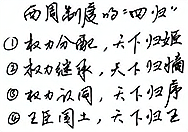 西周制度的"四归"
①权力分配，天下归姬
②权力继承，天下归嫡
③权力认同，天下归序
④王臣同土，天下归王